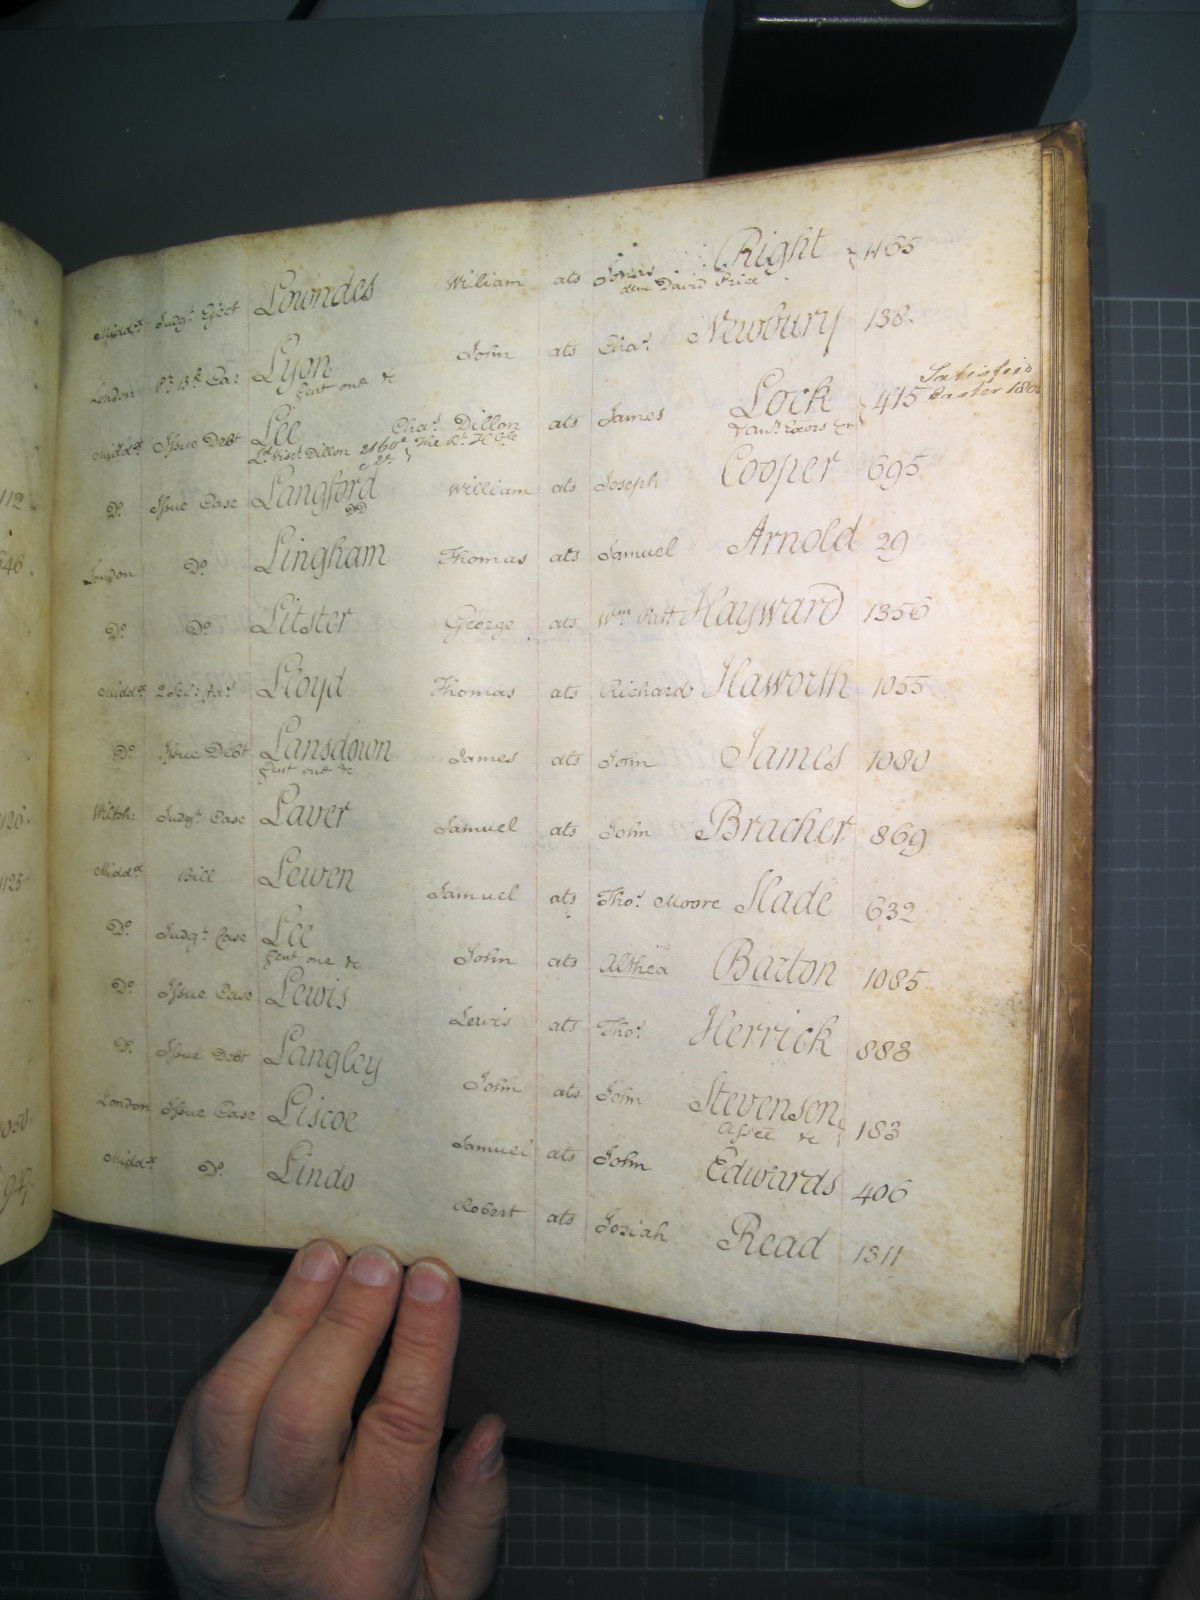 Midd.x Judg.t Eject Lowndes William ats Jonas Right 465
dem David Price
London Pr. Bk. Ca: Lyon John ats Cha.s Newbury 138.
Gent one &c
Midd.x Issue Debt Lee Cha.s Dillon ats James Lock 415 Satisfied
Ld. Visct. Dillon The Rt. Hoble Easter
Do. Issue Case Langford William ats Joseph Cooper 695
London Do. Lingham Thomas ats Samuel Arnold 29
Do. Do. Litster George ats Wm. Hayward 1356
Midd.x 2 Sci: fa: Lloyd Thomas ats Richard Haworth 1055
Do. Issue Debt Lansdown James ats John James 1080
Gent one &c
Wiltsh: Judg.t Case Laver Samuel ats John Bracher 869
Midd.x Bill Lewen Samuel ats Tho.s Moore Slade 632
Do. Judg.t Case Lee John ats Althea Barton 1085
Gent one &c
Do. Issue Case Lewis Lewis ats Tho.s Herrick 888
Do. Issue Debt Langley John ats John Stevenson 183
Assee &c
London Issue Case Liscoe Samuel ats John Edwards 406
Midd.x Do. Lindo Robert ats Josiah Read 1311